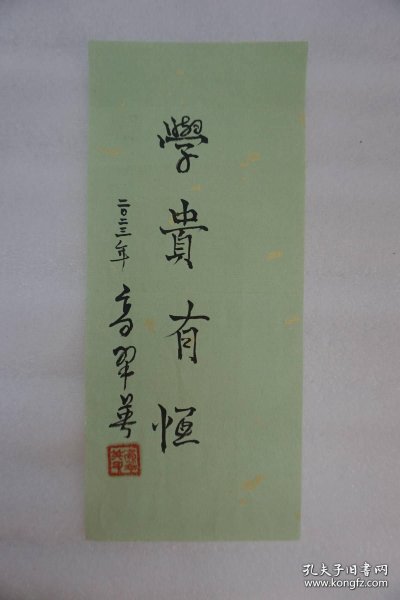 學貴有恆
二〇二三年 高翠華
孔夫子旧书网
www.kongfz.com